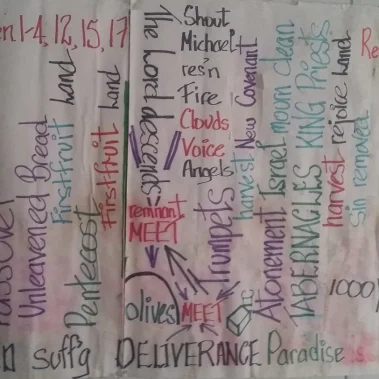 en 1-4, 12, 15, 17
Unleavened Bread
Firstfruit Land
Pentecost
Firstfruit Land
The Lord descends
Shout
Michael+
res'n
Fire
Clouds
Voice
Angels
remnant
MEET
olives
MEET
Trumpets
harvest New Covenant
Atonement Israel mourn clean
TABERNACLES KING Priests
harvest rejoice Land
Sin removed
Re
1000
suff'g DELIVERANCE Paradise